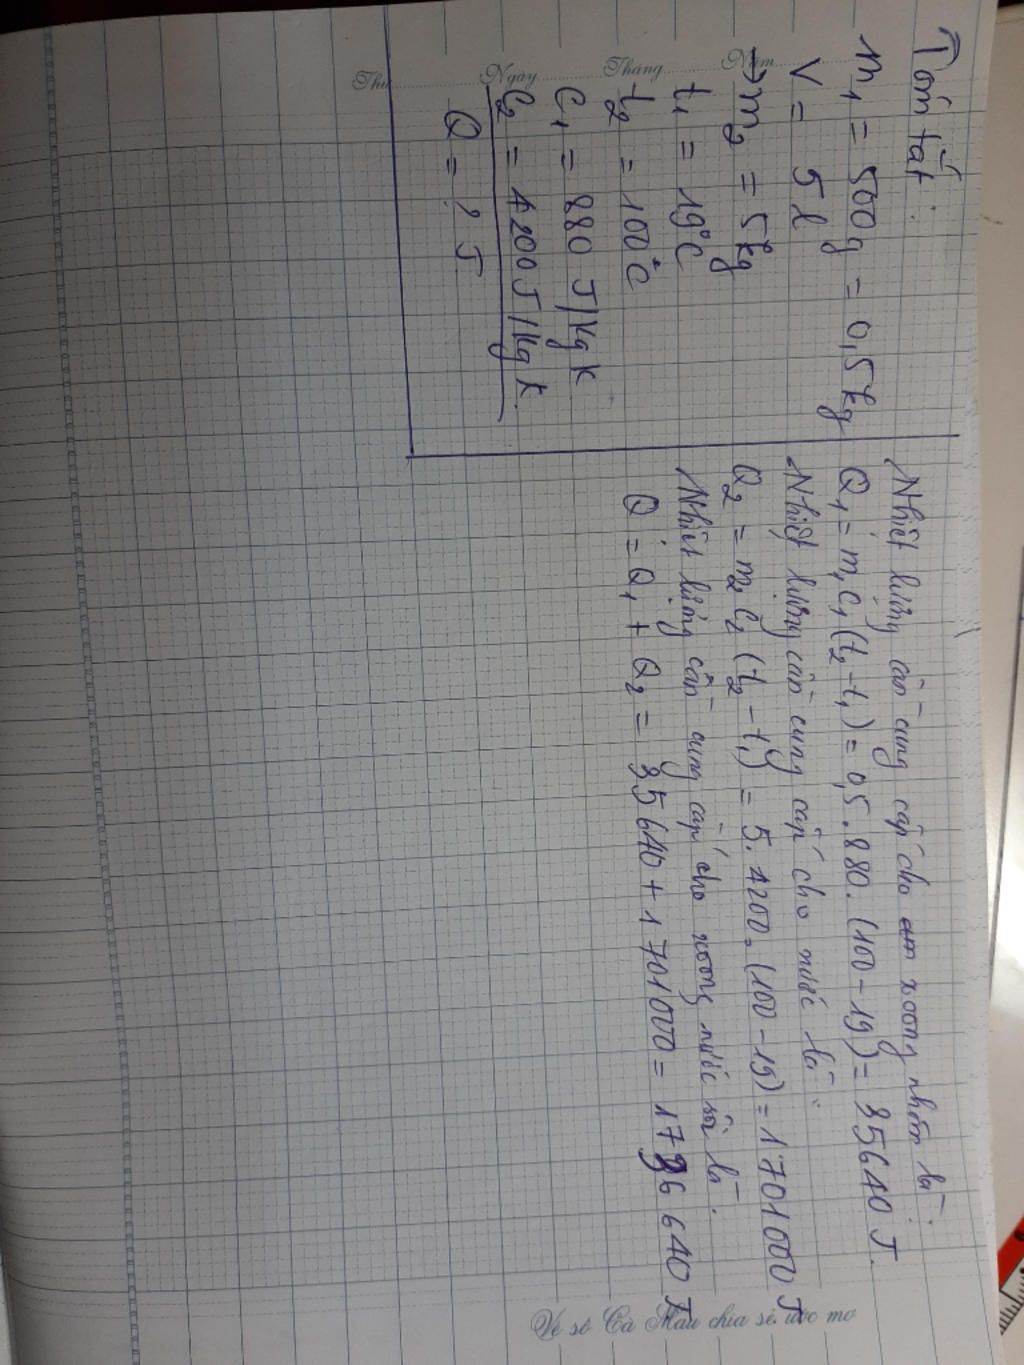 Thứ Ngày Tháng Năm
Tóm tắt:
m₁ = 500g = 0,5kg
V = 5l
→ m₂ = 5kg
t₁ = 19°C
t₂ = 100°C
C₁ = 880 J/kg K
C₂ = 4200 J/kg K.
Q = ? J
Nhiệt lượng cần cung cấp cho xoong nhôm là:
Q₁ = m₁ c₁ (t₂ - t₁) = 0,5 . 880 . (100 - 19) = 35640 J.
Nhiệt lượng cần cung cấp cho nước là:
Q₂ = m₂ c₂ (t₂ - t₁) = 5 . 4200 . (100 - 19) = 1701000 J
Nhiệt lượng cần cung cấp cho xoong nước sôi là:
Q = Q₁ + Q₂ = 35640 + 1701000 = 1736640 J
Vé số Cà Mau chia sẻ ước mơ